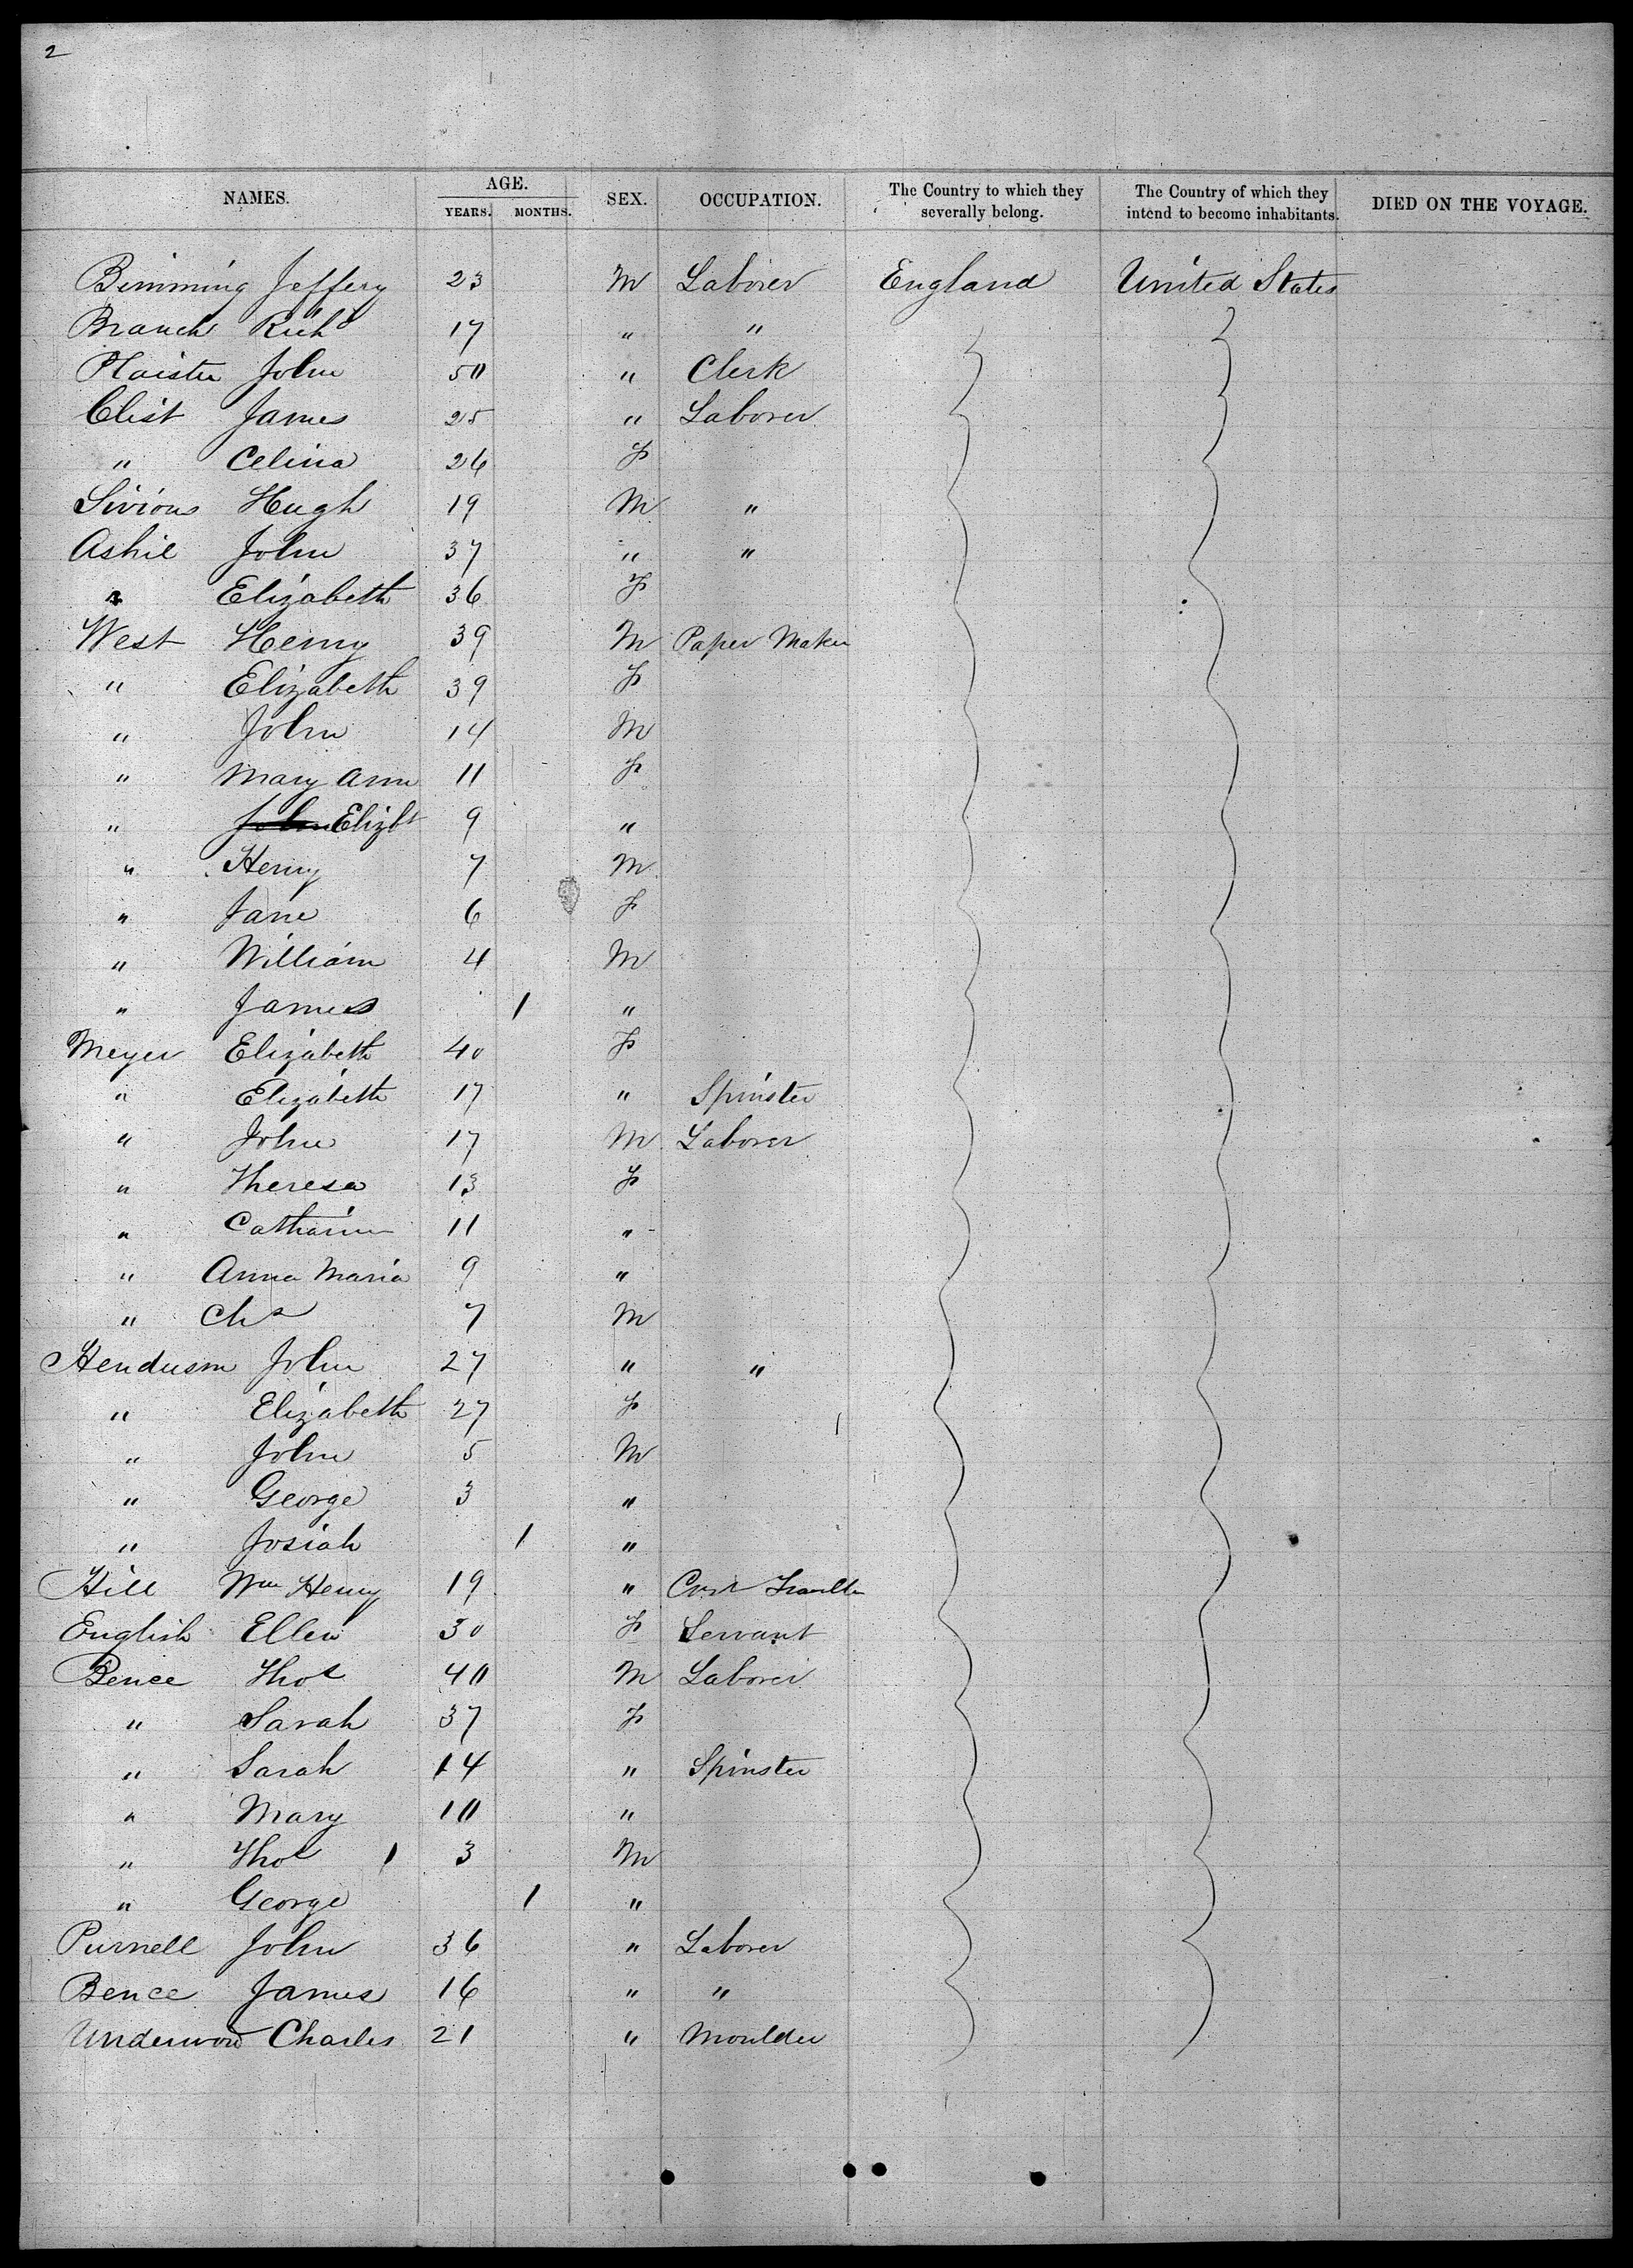 2
NAMES. AGE. YEARS. MONTHS. SEX. OCCUPATION. The Country to which they severally belong. The Country of which they intend to become inhabitants. DIED ON THE VOYAGE.
Bimming Jeffery 23 M Laborer England United States
Branch Richd 17 " "
Plaister John 50 " Clerk
Clist James 25 " Laborer
" Celina 26 F
Hugh 19 M "
John 37 " "
" Elizabeth 36 F
West Henry 39 M Paper Maker
" Elizabeth 39 F
" John 14 M
" Mary Ann 11 F
" John Elizbt 9 "
" Henry 7 M
" Jane 6 F
" William 4 M
" James 1 "
Meyer Elizabeth 40 F
" Elizabeth 17 " Spinster
" John 17 M Laborer
" Theresa 13 F
" Catharine 11 "
" Anna Maria 9 "
" Chs 7 M
Henderson John 27 " "
" Elizabeth 27 F
" John 5 M
" George 3 "
" Josiah 1 "
Hill Wm Henry 19 "
English Ellen 30 F Servant
Bence Thos 40 M Laborer
" Sarah 37 F
" Sarah 14 " Spinster
" Mary 10 "
" Thos 1 3 M
" George 1 "
Purnell John 36 " Laborer
Bence James 16 " "
Underwood Charles 21 " Moulder